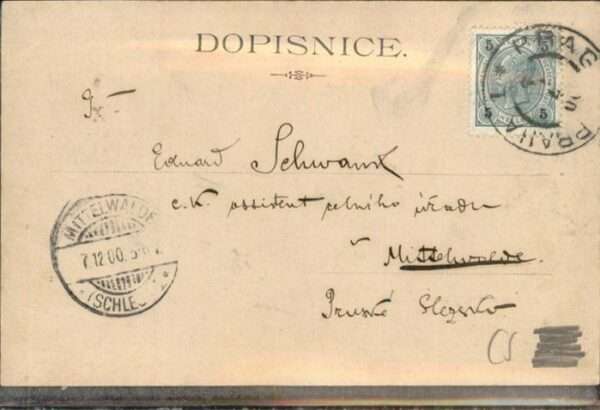 DOPISNICE.
5 5
5 5
PRAG
PRAHA
1
Eduard Schwank
c.k. assistent celního úřadu
v
Mittelwalde
Pruské Slezsko
MITTELWALDE
7.12.00.
(SCHLES
CS